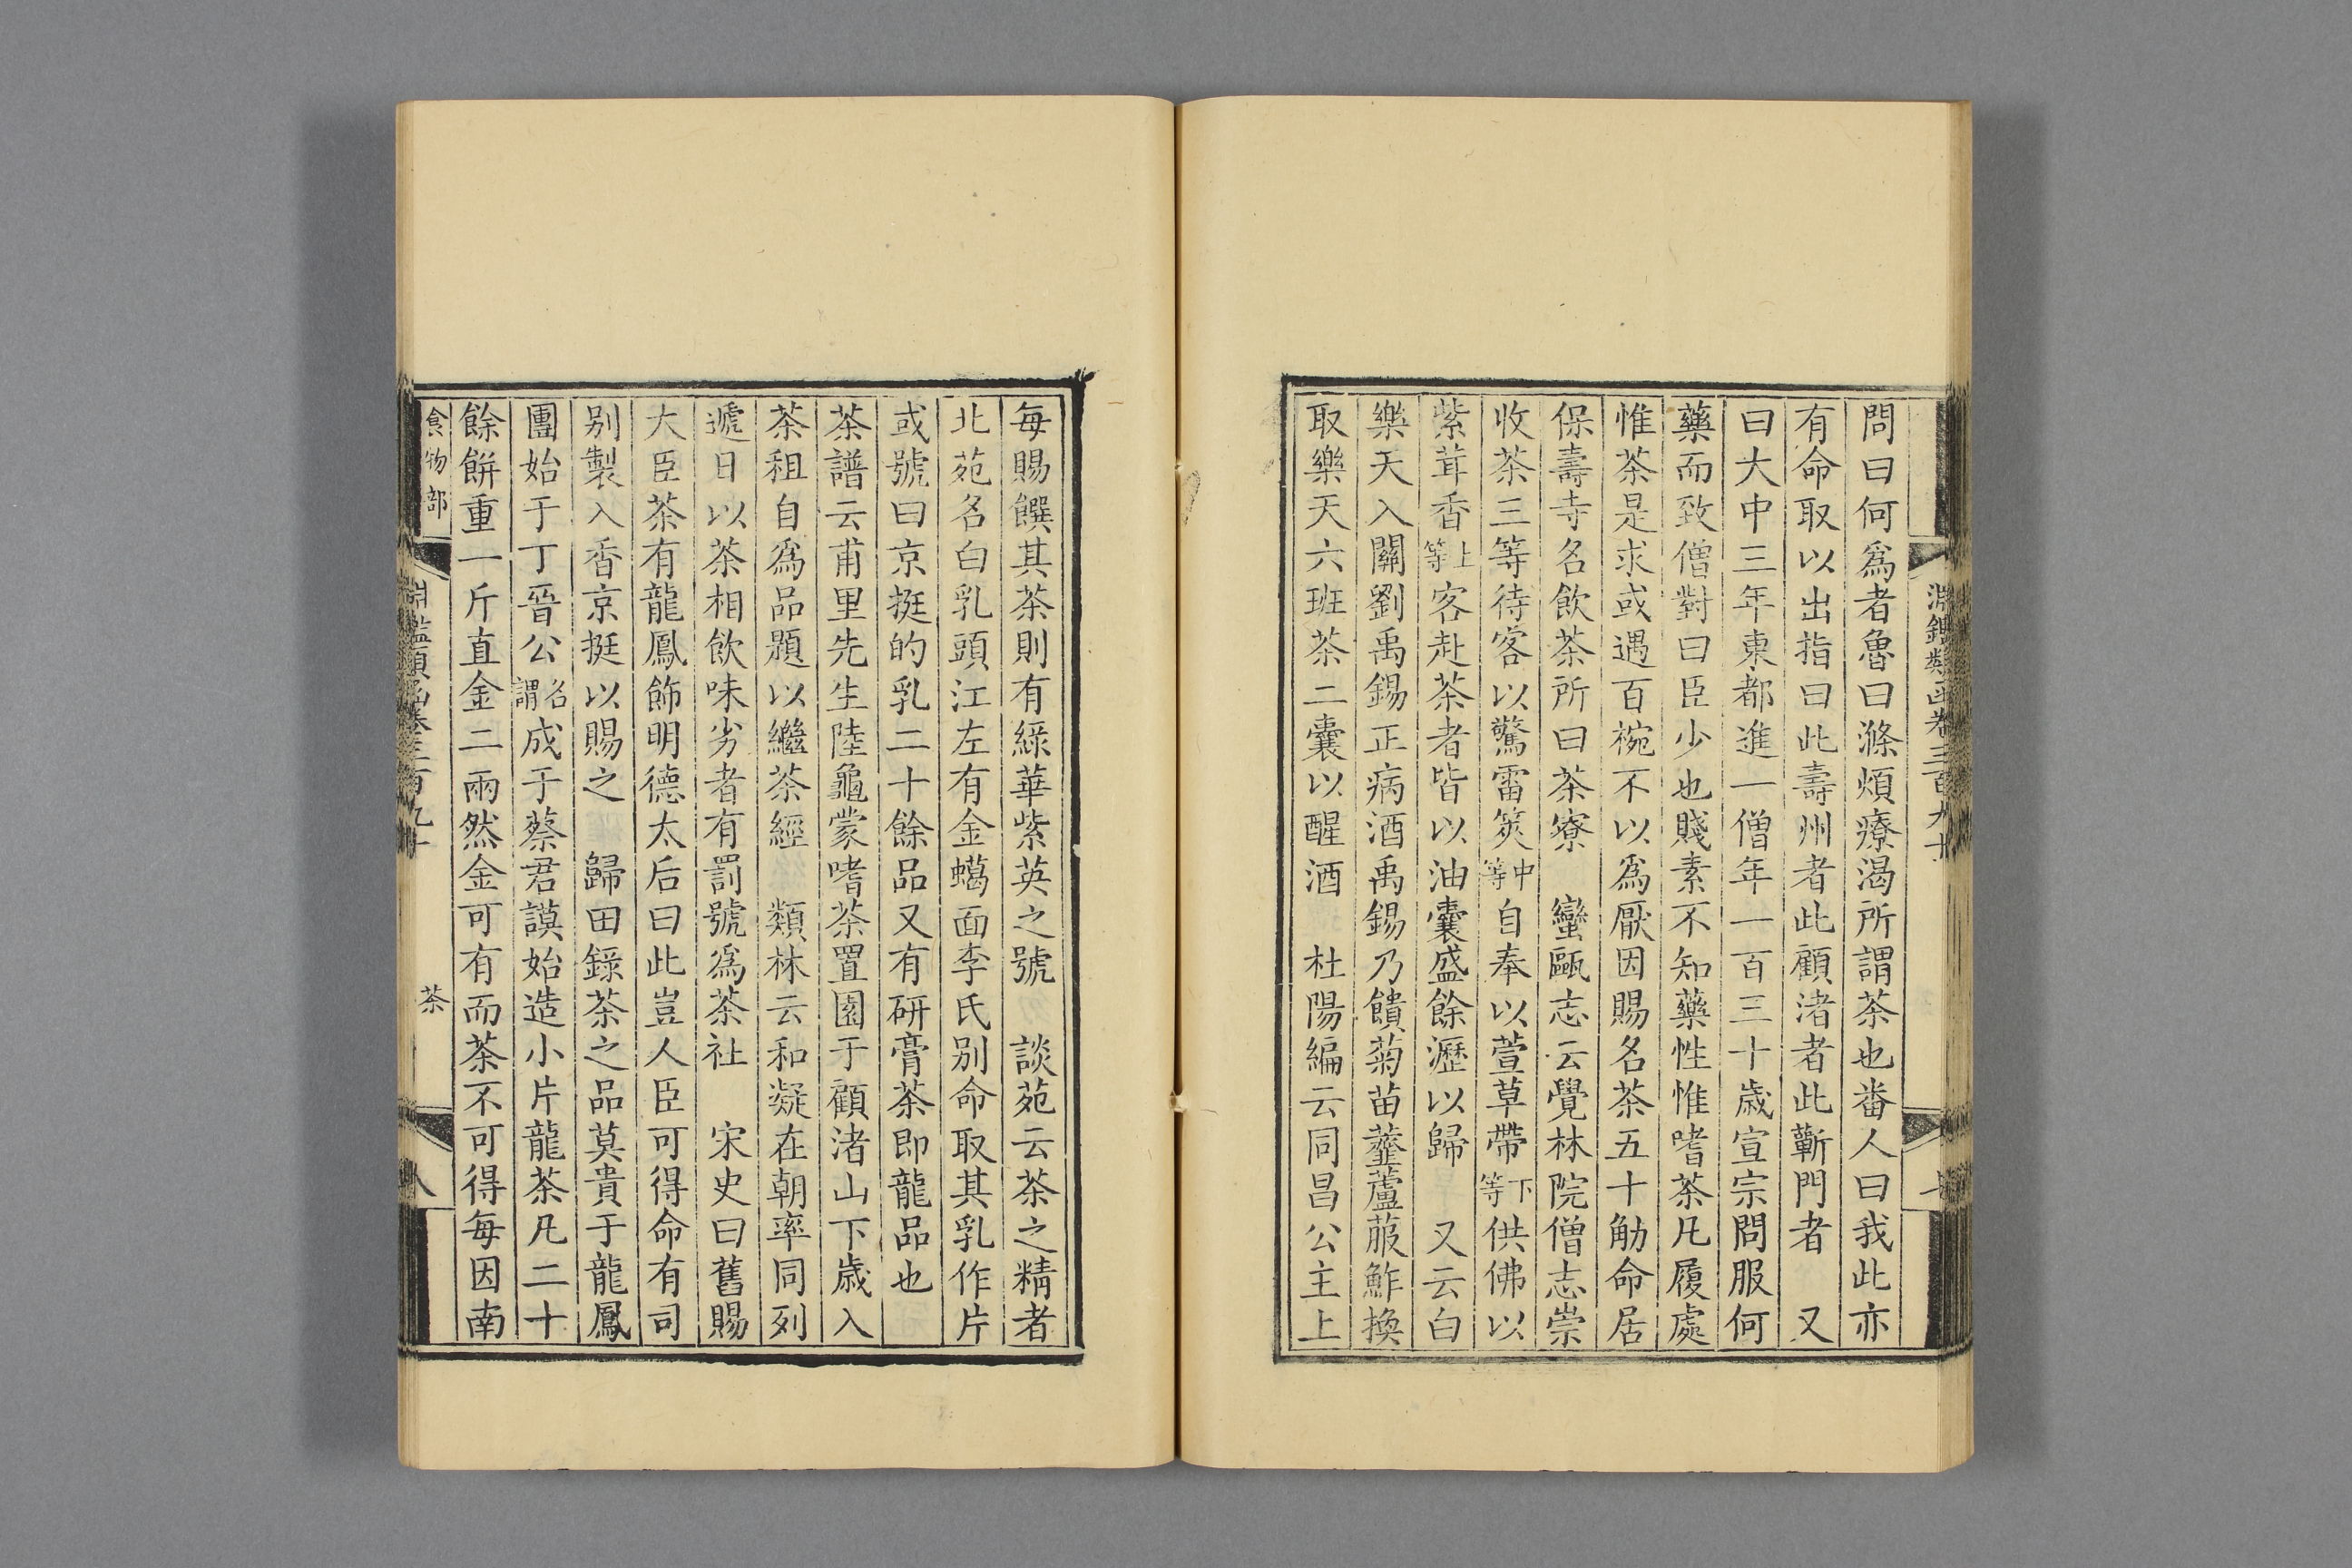 淵鑑類函卷三百九十
問曰何爲者魯曰滌煩療渴所謂茶也番人曰我此亦
有命取以出指曰此壽州者此顧渚者此蘄門者　又
曰大中三年東都進一僧年一百三十歲宣宗問服何
藥而致僧對曰臣少也賤素不知藥性惟嗜茶凡履處
惟茶是求或遇百椀不以爲厭因賜名茶五十觔命居
保壽寺名飲茶所曰茶寮　蠻甌志云覺林院僧志崇
收茶三等待客以驚雷莢中等自奉以萱草帶下等供佛以
紫茸香上等客赴茶者皆以油囊盛餘瀝以歸　又云白
樂天入關劉禹錫正病酒禹錫乃饋菊苗虀蘆菔鮓換
取樂天六班茶二囊以醒酒　杜陽編云同昌公主上
每賜饌其茶則有綠華紫英之號　談苑云茶之精者
北苑名白乳頭江左有金蠟面李氏別命取其乳作片
或號曰京挺的乳二十餘品又有研膏茶即龍品也
茶譜云甫里先生陸龜蒙嗜茶置園于顧渚山下歲入
茶租自爲品題以繼茶經　類林云和凝在朝率同列
遞日以茶相飲味劣者有罰號爲茶社　宋史曰舊賜
大臣茶有龍鳳飾明德太后曰此豈人臣可得命有司
別製入香京挺以賜之　歸田錄茶之品莫貴于龍鳳
團始于丁晉公名謂成于蔡君謨始造小片龍茶凡二十
餘餅重一斤直金二兩然金可有而茶不可得每因南
食物部　淵鑑類函卷三百九十　茶　八